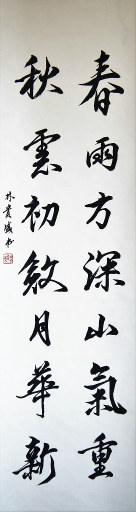 春雨方深山氣重
秋雲初斂月華新
林貴盛书